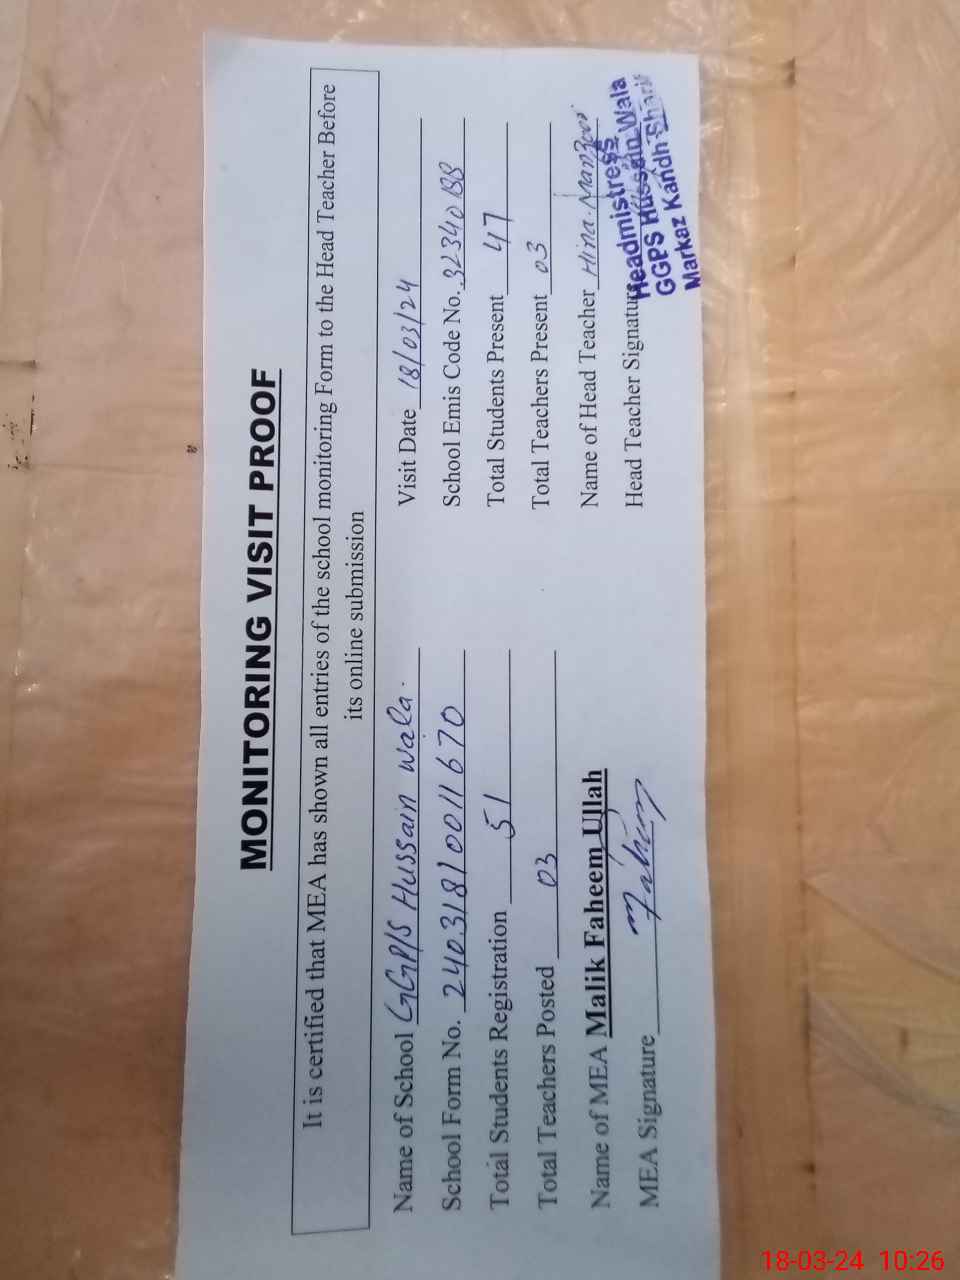 MONITORING VISIT PROOF
It is certified that MEA has shown all entries of the school monitoring Form to the Head Teacher Before
its online submission
Name of School GGP/S Hussain Wala. Visit Date 18/03/24
School Form No. 24031810011670 School Emis Code No. 32340188
Total Students Registration 51 Total Students Present 47
Total Teachers Posted 03 Total Teachers Present 03
Name of MEA Malik Faheem Ullah Name of Head Teacher Hina Manzoor
MEA Signature Faheem Head Teacher Signature
Headmistress
GGPS Hussain Wala
Markaz Kandh Sharif
18-03-24 10:26